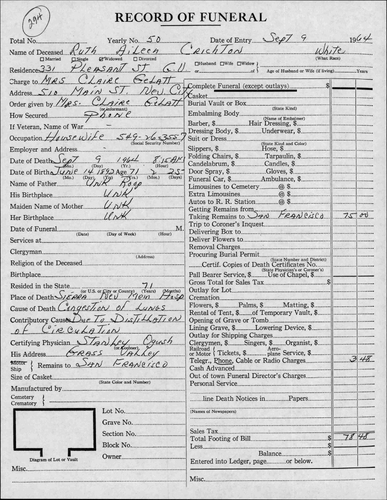 294
RECORD OF FUNERAL
Total No. Yearly No. 50 Date of Entry Sept 9 1964
Name of Deceased Ruth Aileen Crichton White
Married Single Widowed Divorced Husband Widow (What Race)
Residence 331 Pleasant St G.V. Age of Husband or Wife (if living) Years
Charge to Mrs Claire Gelatt
Address 510 Main St. Nev. C.
Order given by Mrs. Claire Gelatt
How Secured Phone
If Veteran, Name of War
Occupation Housewife
(Social Security Number)
Employer and Address
Date of Death Sept 9 1964 8:15 AM
Date of Birth June 14 1892 Age 71 2 25
Name of Father Unk Roop
His Birthplace Unk
Maiden Name of Mother Unk
Her Birthplace Unk
Date of Funeral M
(Date) (Day of Week) (Hour)
Services at
(Address)
Clergyman
Religion of the Deceased
Birthplace
Resided in the State 71
(or U.S. or City or County) (Yrs.)
Place of Death Sierra Nev Mem Hosp
Cause of Death Congestion of Lungs
Contributory Cause Due to Distillation
of Circulation
Certifying Physician Stanley
His Address Grass Valley
Ship Remains to San Francisco
Size of Casket
(State Color and Number)
Manufactured by
Cemetery
Crematory
Lot No.
Grave No.
Section No.
Block No.
Owner
Diagram of Lot or Vault
Misc.
Complete Funeral (except outlays) $
Casket
Burial Vault or Box
(State Kind)
Embalming Body
(Name of Embalmer)
Barber, $ Hair Dressing, $
Dressing Body, $ Underwear, $
Suit or Dress
(State Kind and Color)
Slippers, $ Hose, $
Folding Chairs, $ Tarpaulin, $
Candelabrum, $ Candles, $
Door Spray, $ Gloves, $
Funeral Car, $ Ambulance, $
Limousines to Cemetery @ $
Extra Limousines @ $
Autos to R. R. Station @ $
Getting Remains from
Taking Remains to San Francisco 75 00
Trip to Coroner's Inquest
Delivering Box to
Deliver Flowers to
Removal Charges
Procuring Burial Permit
(State Number and District)
Certif. Copies of Death Certificates No.
(State Physician's or Coroner's)
Pall Bearer Service, $ Use of Chapel, $
Gross Total for Sales Tax $
Outlay for Lot
Cremation
Flowers, $ Palms, $ Matting, $
Rental of Tent, $ of Temporary Vault, $
Opening of Grave or Tomb
Lining Grave, $ Lowering Device, $
Outlay for Shipping Charges
Clergymen, $ Singers, $ Organist, $
Railroad or Motor Tickets, $ Aeroplane Service, $
Telegr., Phone, Cable or Radio Charges 3 48
Cash Advanced
Out of town Funeral Director's Charges
Personal Service
line Death Notices in Papers
(Names of Newspapers)
Sales Tax
Total Footing of Bill $ 78 48
Less
Balance $
Entered into Ledger, page or below.
Misc.